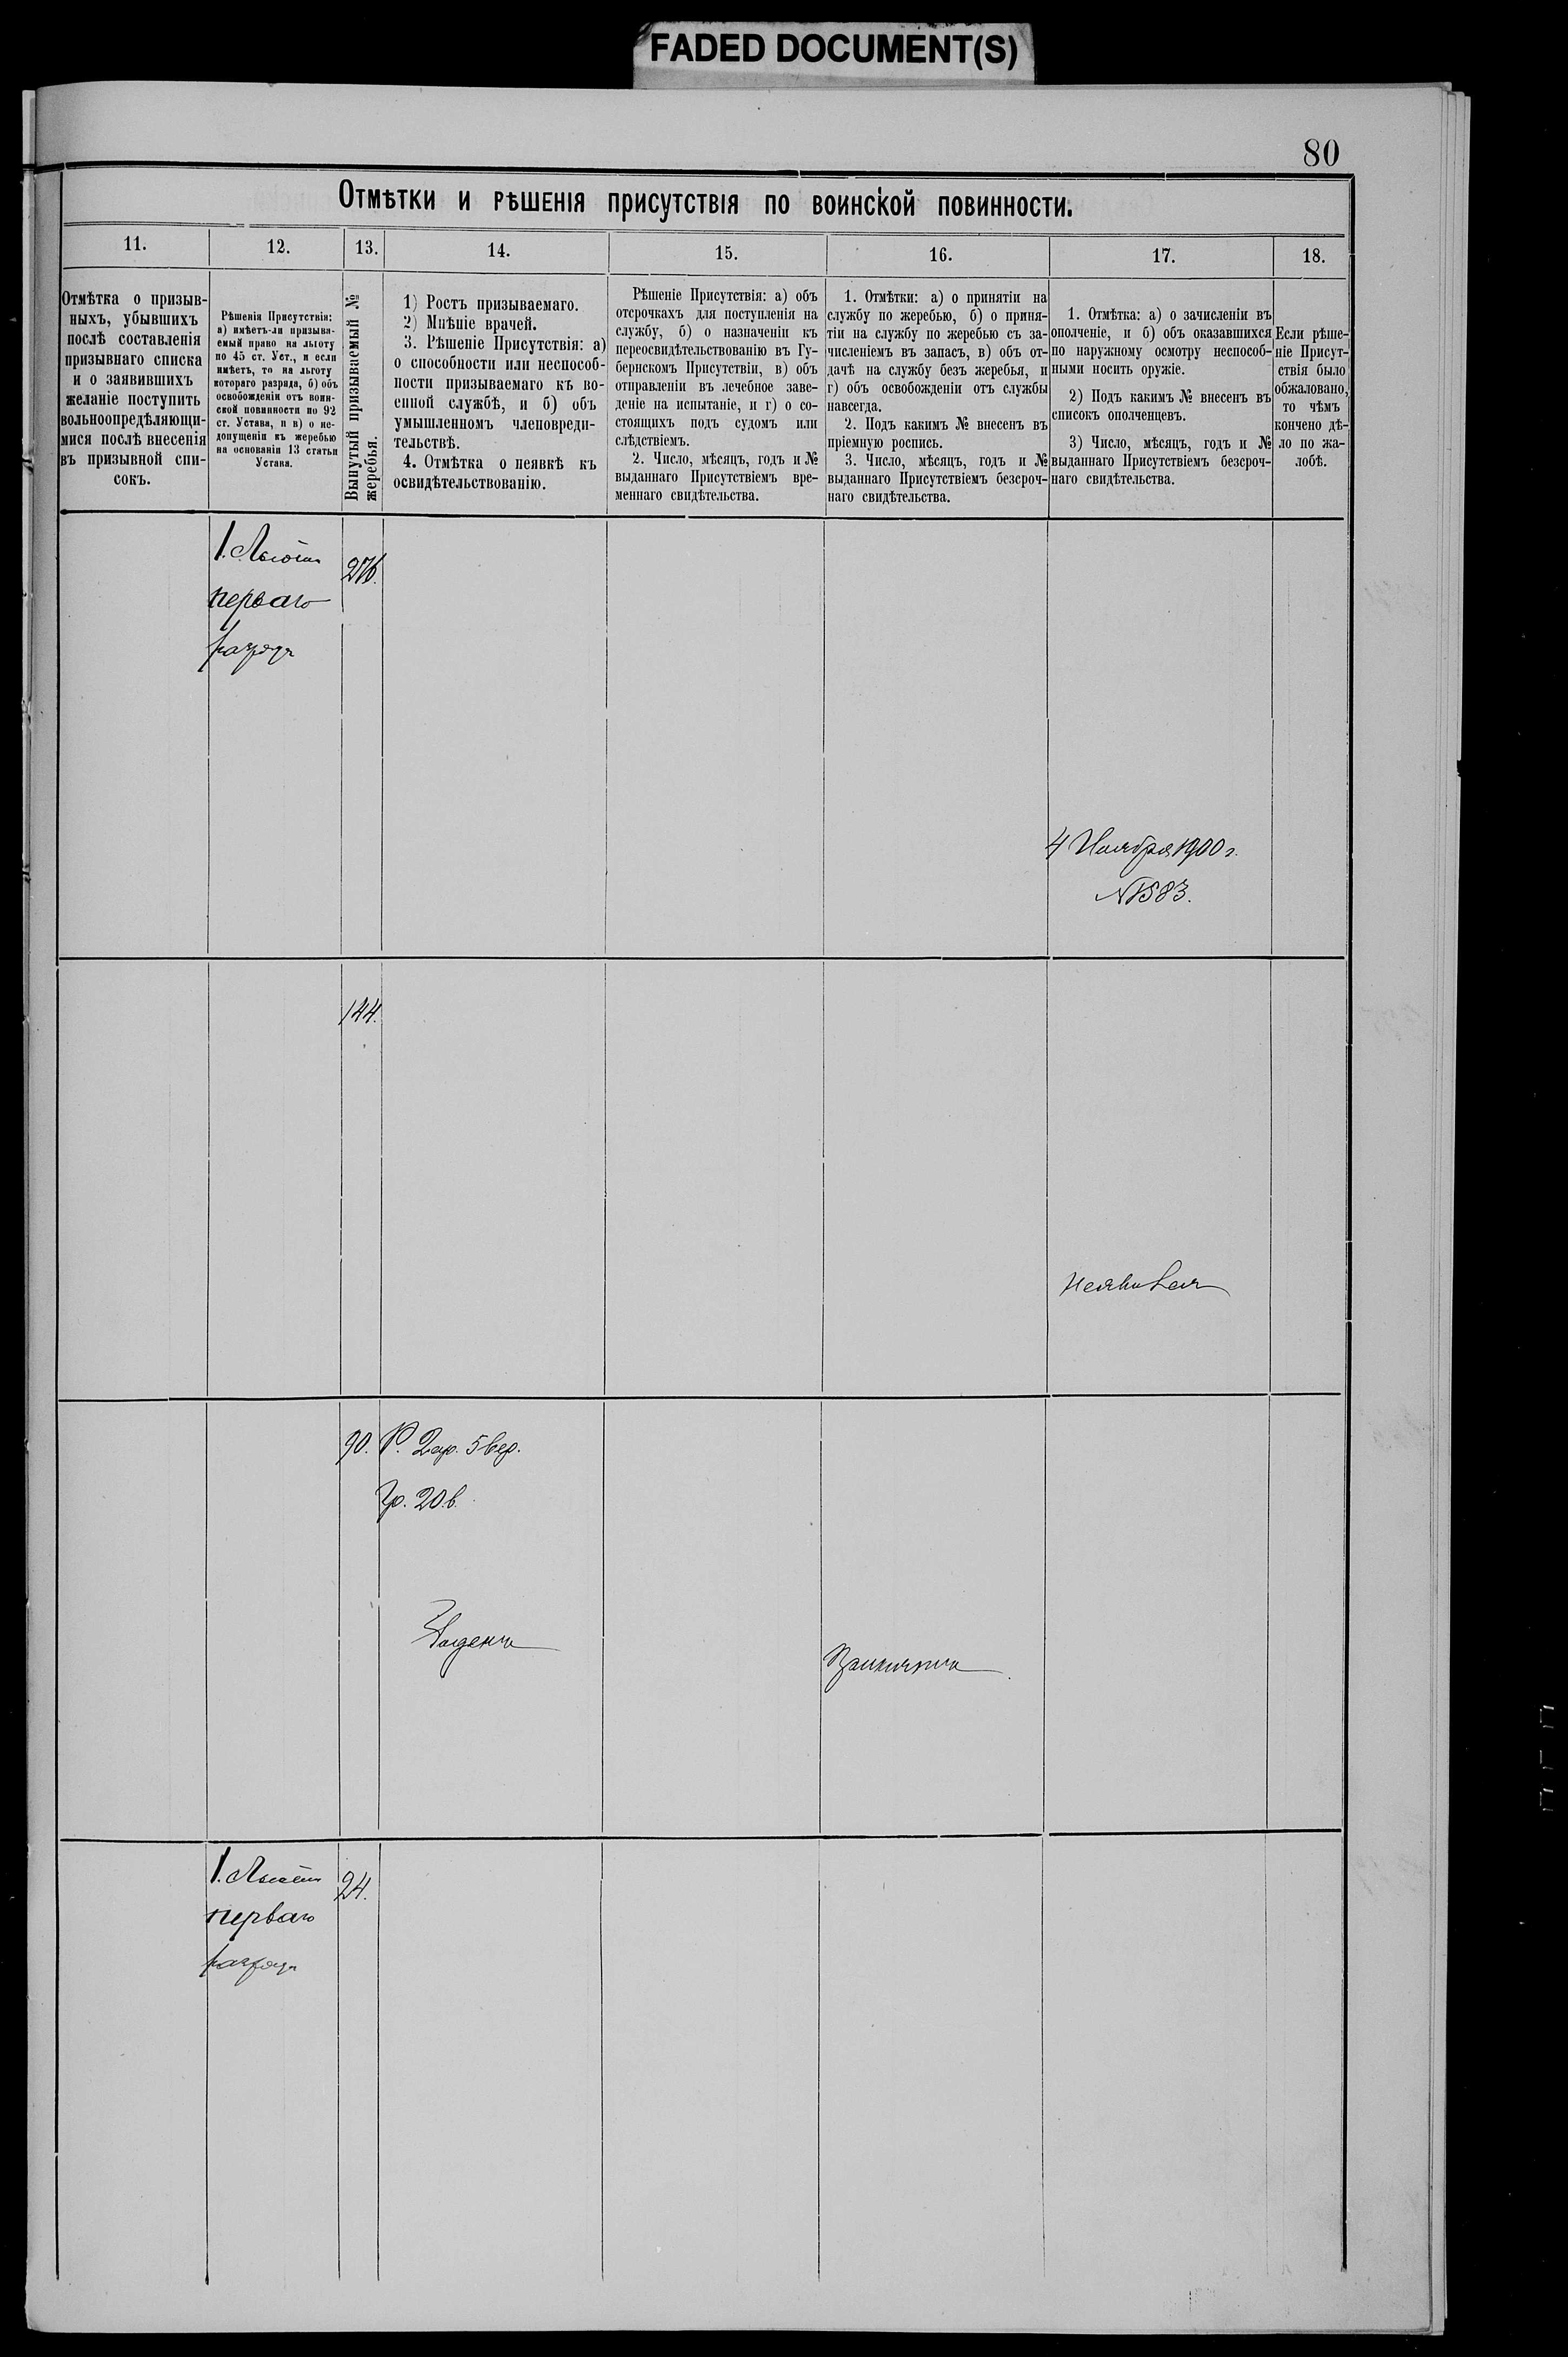 FADED DOCUMENT(S)
80
Отмѣтки и рѣшенія присутствія по воинской повинности.
11.
12.
13.
14.
15.
16.
17.
18.
Отмѣтка о призыв-
ныхъ, убывшихъ
послѣ составленія
призывнаго списка
и о заявившихъ
желаніе поступить
вольноопредѣляющи-
мися послѣ внесенія
въ призывной спи-
сокъ.
Рѣшенія Присутствія:
а) имѣетъ-ли призыва-
емый право на льготу
по 45 ст. Уст., и если
имѣетъ, то на льготу
котораго разряда, б) объ
освобожденіи отъ воин-
ской повинности по 92
ст. Устава, и в) о не-
допущеніи къ жеребью
на основаніи 13 статьи
Устава.
Вынутый призываемый №
жеребья.
1) Ростъ призываемаго.
2) Мнѣніе врачей.
3. Рѣшеніе Присутствія: а)
о способности или неспособ-
ности призываемаго къ во-
енной службѣ, и б) объ
умышленномъ членовреди-
тельствѣ.
4. Отмѣтка о неявкѣ къ
освидѣтельствованію.
Рѣшеніе Присутствія: а) объ
отсрочкахъ для поступленія на
службу, б) о назначеніи къ
переосвидѣтельствованію въ Гу-
бернскомъ Присутствіи, в) объ
отправленіи въ лечебное заве-
деніе на испытаніе, и г) о со-
стоящихъ подъ судомъ или
слѣдствіемъ.
2. Число, мѣсяцъ, годъ и №
выданнаго Присутствіемъ вре-
меннаго свидѣтельства.
1. Отмѣтки: а) о принятіи на
службу по жеребью, б) о приня-
тіи на службу по жеребью съ за-
численіемъ въ запасъ, в) объ от-
дачѣ на службу безъ жеребья, и
г) объ освобожденіи отъ службы
навсегда.
2. Подъ какимъ № внесенъ въ
пріемную роспись.
3. Число, мѣсяцъ, годъ и №
выданнаго Присутствіемъ безсроч-
наго свидѣтельства.
1. Отмѣтка: а) о зачисленіи въ
ополченіе, и б) объ оказавшихся
по наружному осмотру неспособ-
ными носить оружіе.
2) Подъ какимъ № внесенъ въ
списокъ ополченцевъ.
3) Число, мѣсяцъ, годъ и №
выданнаго Присутствіемъ безсроч-
наго свидѣтельства.
Если рѣше-
ніе Присут-
ствія было
обжаловано,
то чѣмъ
кончено дѣ-
ло по жа-
лобѣ.
1. Льгота
перваго
разряда
276.
4 Ноября 1900 г.
№ 1583.
144.
неявился
90.
Р. 2 ар. 5 вер.
Гр. 20 в.
Годенъ
1. Льгота
перваго
разряда
24.